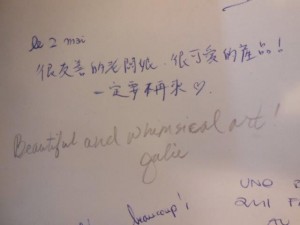 le 2 mai
很友善的老闆娘，很可愛的產品！
一定要再來♡.
Beautiful and whimsical art!
Julie
UNO
QUI